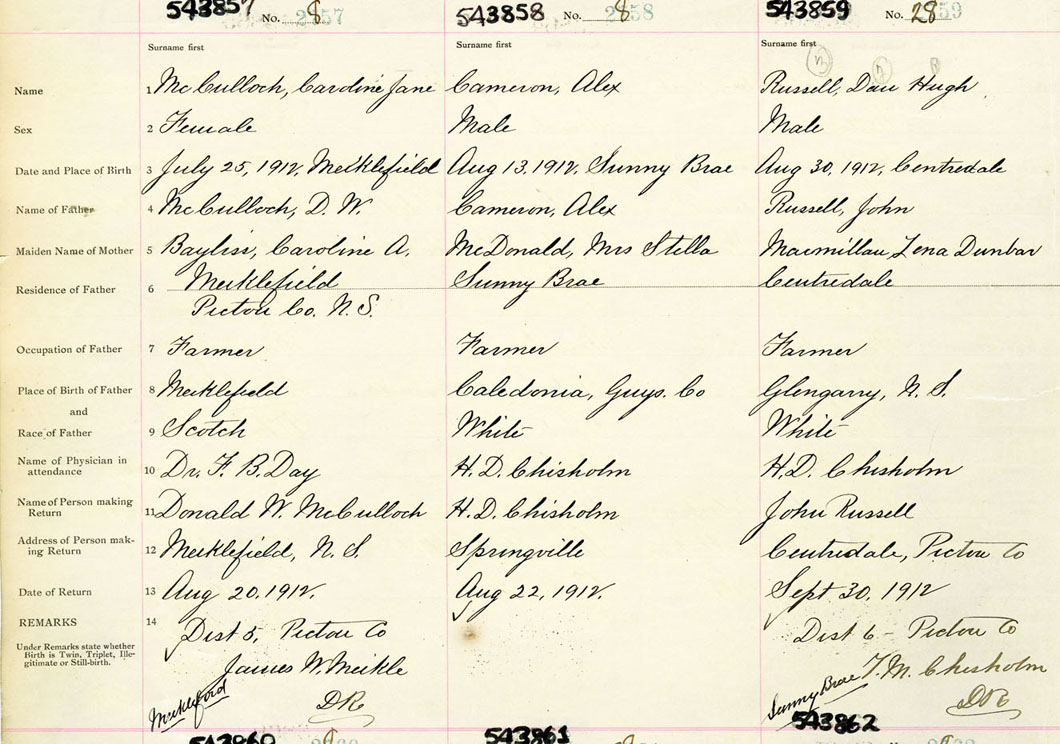 543857 No. 8 2 57 543858 No. 8 2 58 543859 No. 28 59
Surname first Surname first Surname first
Name 1 McCulloch, Caroline Jane Cameron, Alex Russell, Dan Hugh
Sex 2 Female Male Male
Date and Place of Birth 3 July 25, 1912, Meiklefield Aug 13, 1912, Sunny Brae Aug 30, 1912, Centredale
Name of Father 4 McCulloch, D. W. Cameron, Alex Russell, John
Maiden Name of Mother 5 Bayliss, Caroline A. McDonald, Mrs Stella Macmillan Lena Dunbar
Residence of Father 6 Meiklefield Sunny Brae Centredale
Pictou Co. N.S.
Occupation of Father 7 Farmer Farmer Farmer
Place of Birth of Father 8 Meiklefield Caledonia, Guys. Co Glengarry, N. S.
and
Race of Father 9 Scotch White White
Name of Physician in
attendance 10 Dr. F. B. Day H. D. Chisholm H.D. Chisholm
Name of Person making
Return 11 Donald W. McCulloch H. D. Chisholm John Russell
Address of Person mak-
ing Return 12 Meiklefield, N. S. Springville Centredale, Pictou Co
Date of Return 13 Aug 20, 1912. Aug 22, 1912. Sept 30, 1912
REMARKS 14 Dist 5, Pictou Co Dist 6 - Pictou Co
Under Remarks state whether
Birth is Twin, Triplet, Ille-
gitimate or Still-birth.
James W. Meikle T. M. Chisholm
Meikleford DR Sunny Brae DR
543860 543861 543862